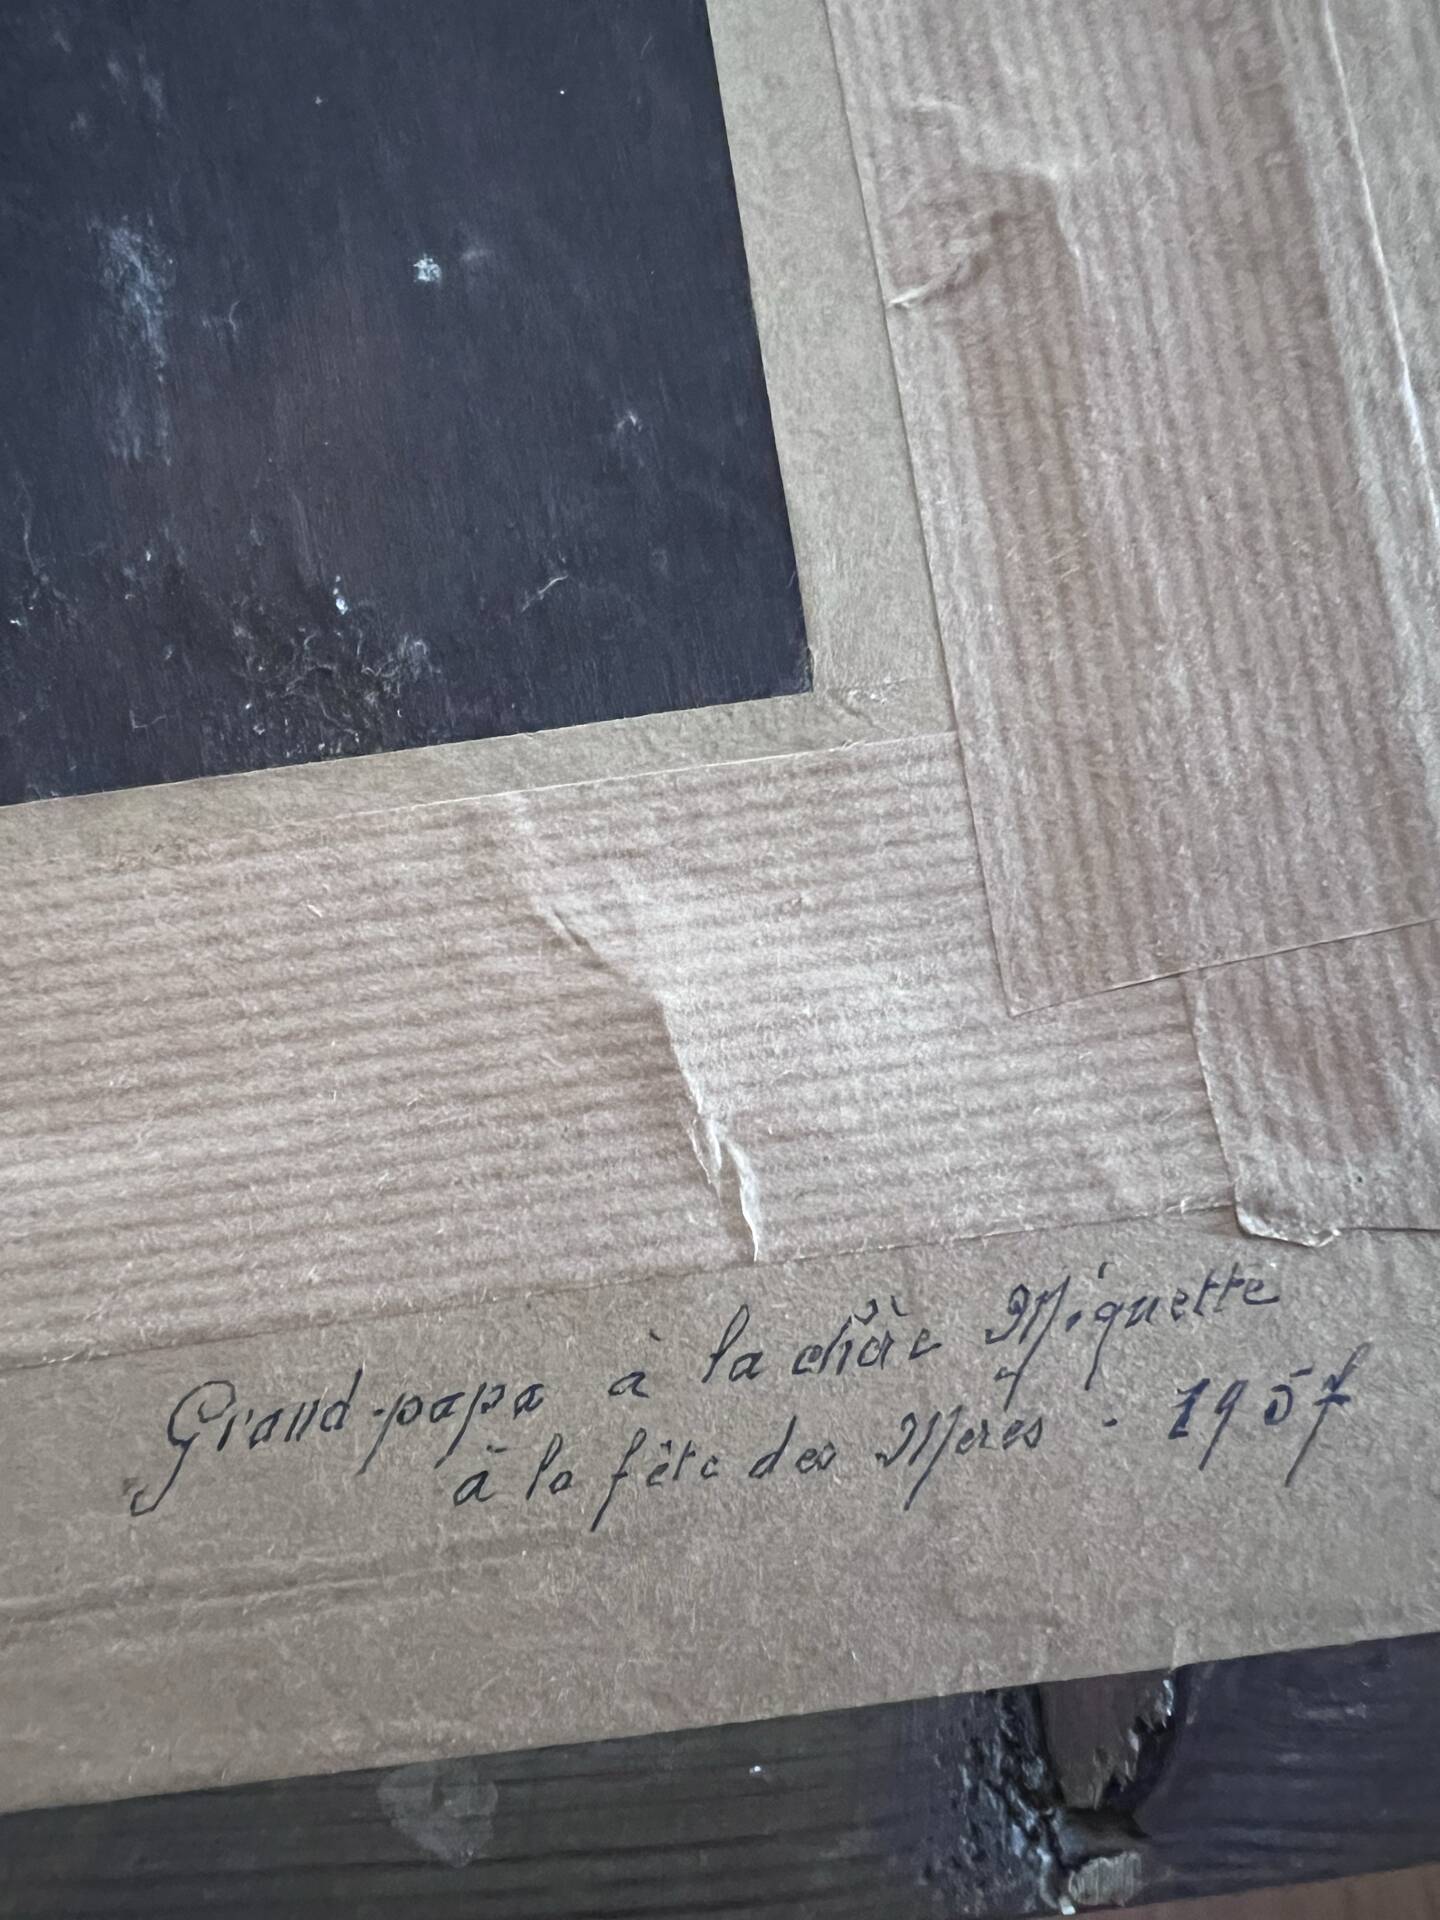 Grand-papa à la chère Miquette
à la fête des Mères - 1957